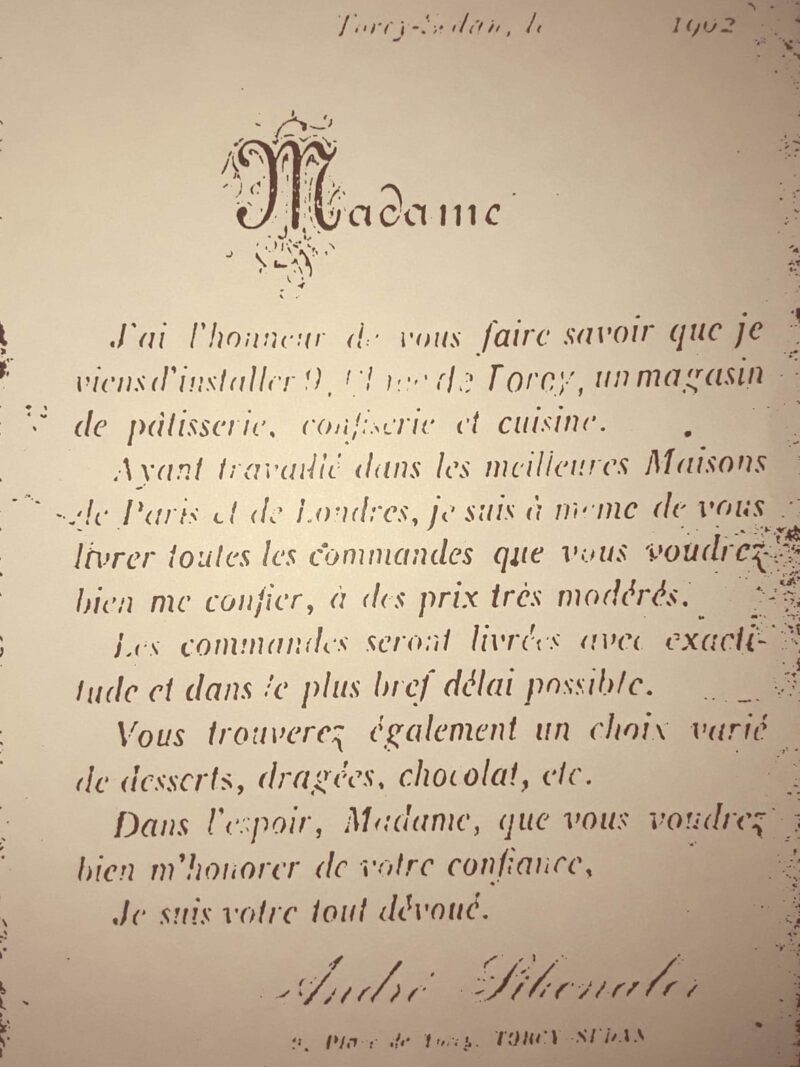 Torcy-Sedan, le 1902
Madame
J'ai l'honneur de vous faire savoir que je
viens d'installer 9, Place de Torcy, un magasin
de pâtisserie, confiserie et cuisine.
Ayant travaillé dans les meilleures Maisons
de Paris et de Londres, je suis à même de vous
livrer toutes les commandes que vous voudrez
bien me confier, à des prix très modérés.
Les commandes seront livrées avec exacti-
tude et dans le plus bref délai possible.
Vous trouverez également un choix varié
de desserts, dragées, chocolat, etc.
Dans l'espoir, Madame, que vous voudrez
bien m'honorer de votre confiance,
Je suis votre tout dévoué.
André
9, Place de Torcy, TORCY-SEDAN